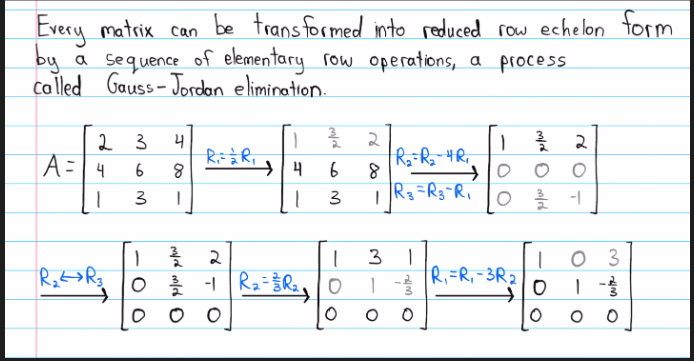 Every matrix can be transformed into reduced row echelon form
by a sequence of elementary row operations, a process
called Gauss-Jordan elimination.
A = [2 3 4; 4 6 8; 1 3 1] R₁=½R₁ → [1 3/2 2; 4 6 8; 1 3 1] R₂=R₂-4R₁ R₃=R₃-R₁ → [1 3/2 2; 0 0 0; 0 3/2 -1]
R₂↔R₃ → [1 3/2 2; 0 3/2 -1; 0 0 0] R₂=⅔R₂ → [1 3 1; 0 1 -2/3; 0 0 0] R₁=R₁-3R₂ → [1 0 3; 0 1 -2/3; 0 0 0]